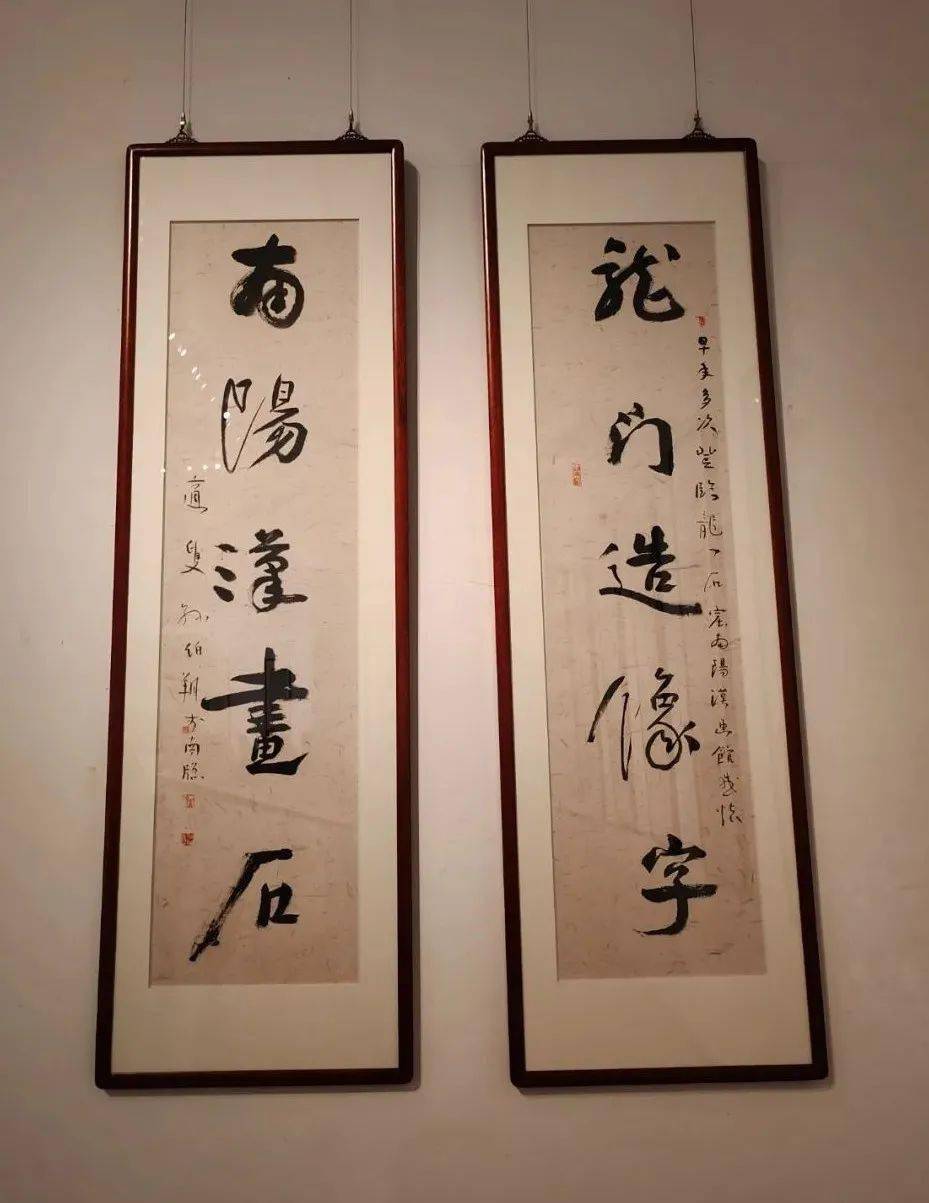 龍门造像字
早年多次登臨龍门石窟南陽漢画館感怀
南陽漢畫石
適叟孫伯翔於南牕